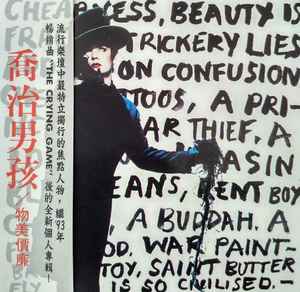 流行樂壇中最特立獨行的焦點人物，繼'93年
暢銷曲"THE CRYING GAME"後的全新個人專輯！
喬治男孩
物美價廉
CHEA NESS, BEAUTY IS
FRA TRICKED LIES
ON CONFUSION
TOOS, A PRI-
AR THIEF, A
ASIN
EANS, BENT BOY
, A BUDDAH. A
OD, WAR PAINT-
TOY, SAINT BUTTER
FLY IS SO CIVILISED.—